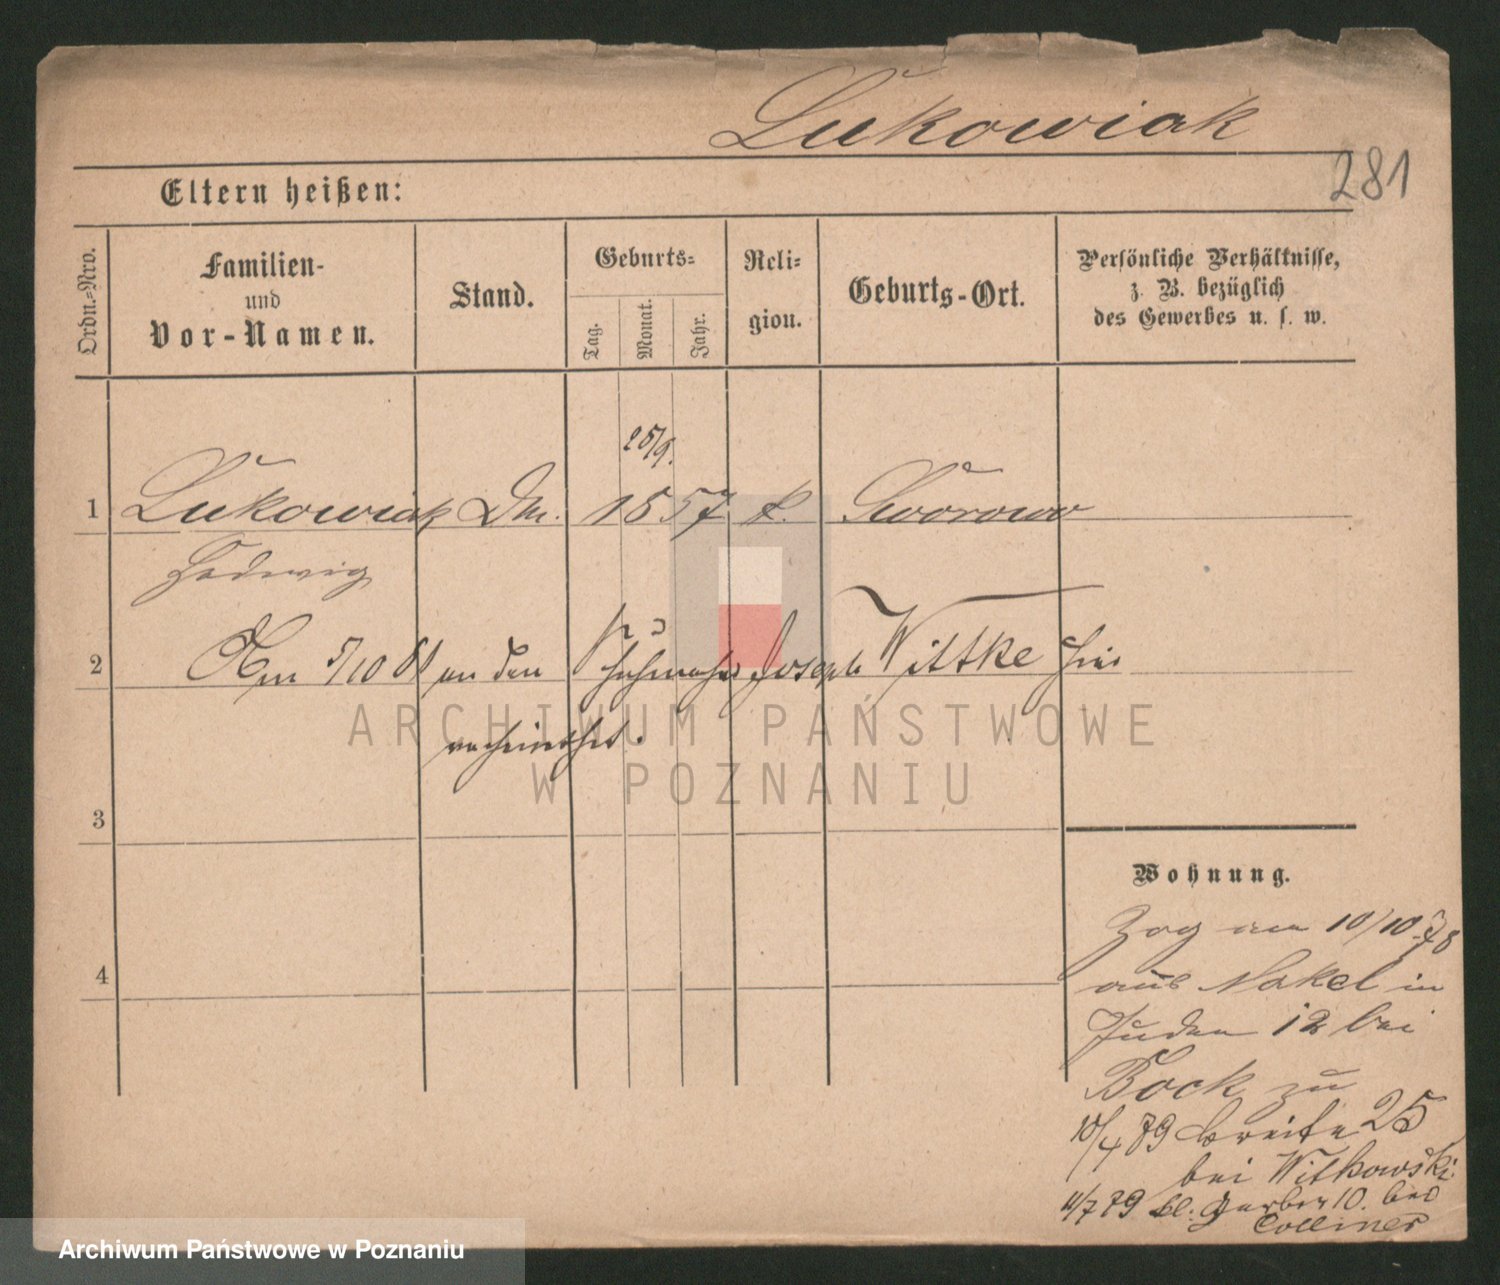 Lukowiak
281
Eltern heißen:
Ordn.=Nro.
Familien-
und
Vor-Namen.
Stand.
Geburts=
Tag.
Monat.
Jahr.
Reli=
gion.
Geburts-Ort.
Persönliche Verhältnisse,
z. B. bezüglich
des Gewerbes u. s. w.
25/9.
1 Lukowiak 1857 k. Gworowo
Hedwig
2 Am 5/10 81 an den Schuhmacher Joseph Wittke hier
verheirathet.
3
Wohnung.
4
Zog am 10/10 78
aus Nakel in
Juden 12 bei
Bock zu
10/4 79 breite 25
bei Witkowski
11/7 79 kl: Gerber 10. bei
Colliner
ARCHIWUM PAŃSTWOWE
W POZNANIU
Archiwum Państwowe w Poznaniu